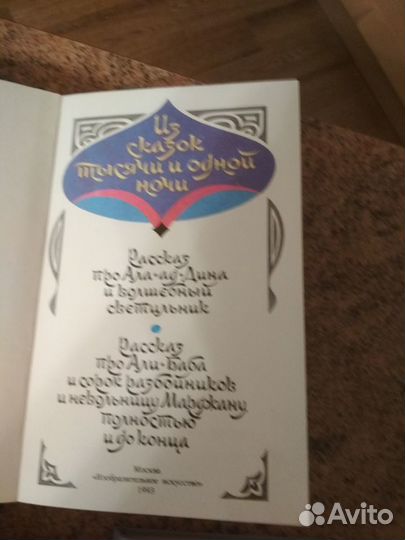 Из
сказок
тысячи и одной
ночи
Рассказ
про Ала-ад-Дина
и волшебный
светильник
Рассказ
про Али-Баба
и сорок разбойников
и невольницу Марджану
полностью
и до конца
Москва
«Изобразительное искусство»
1993
Avito